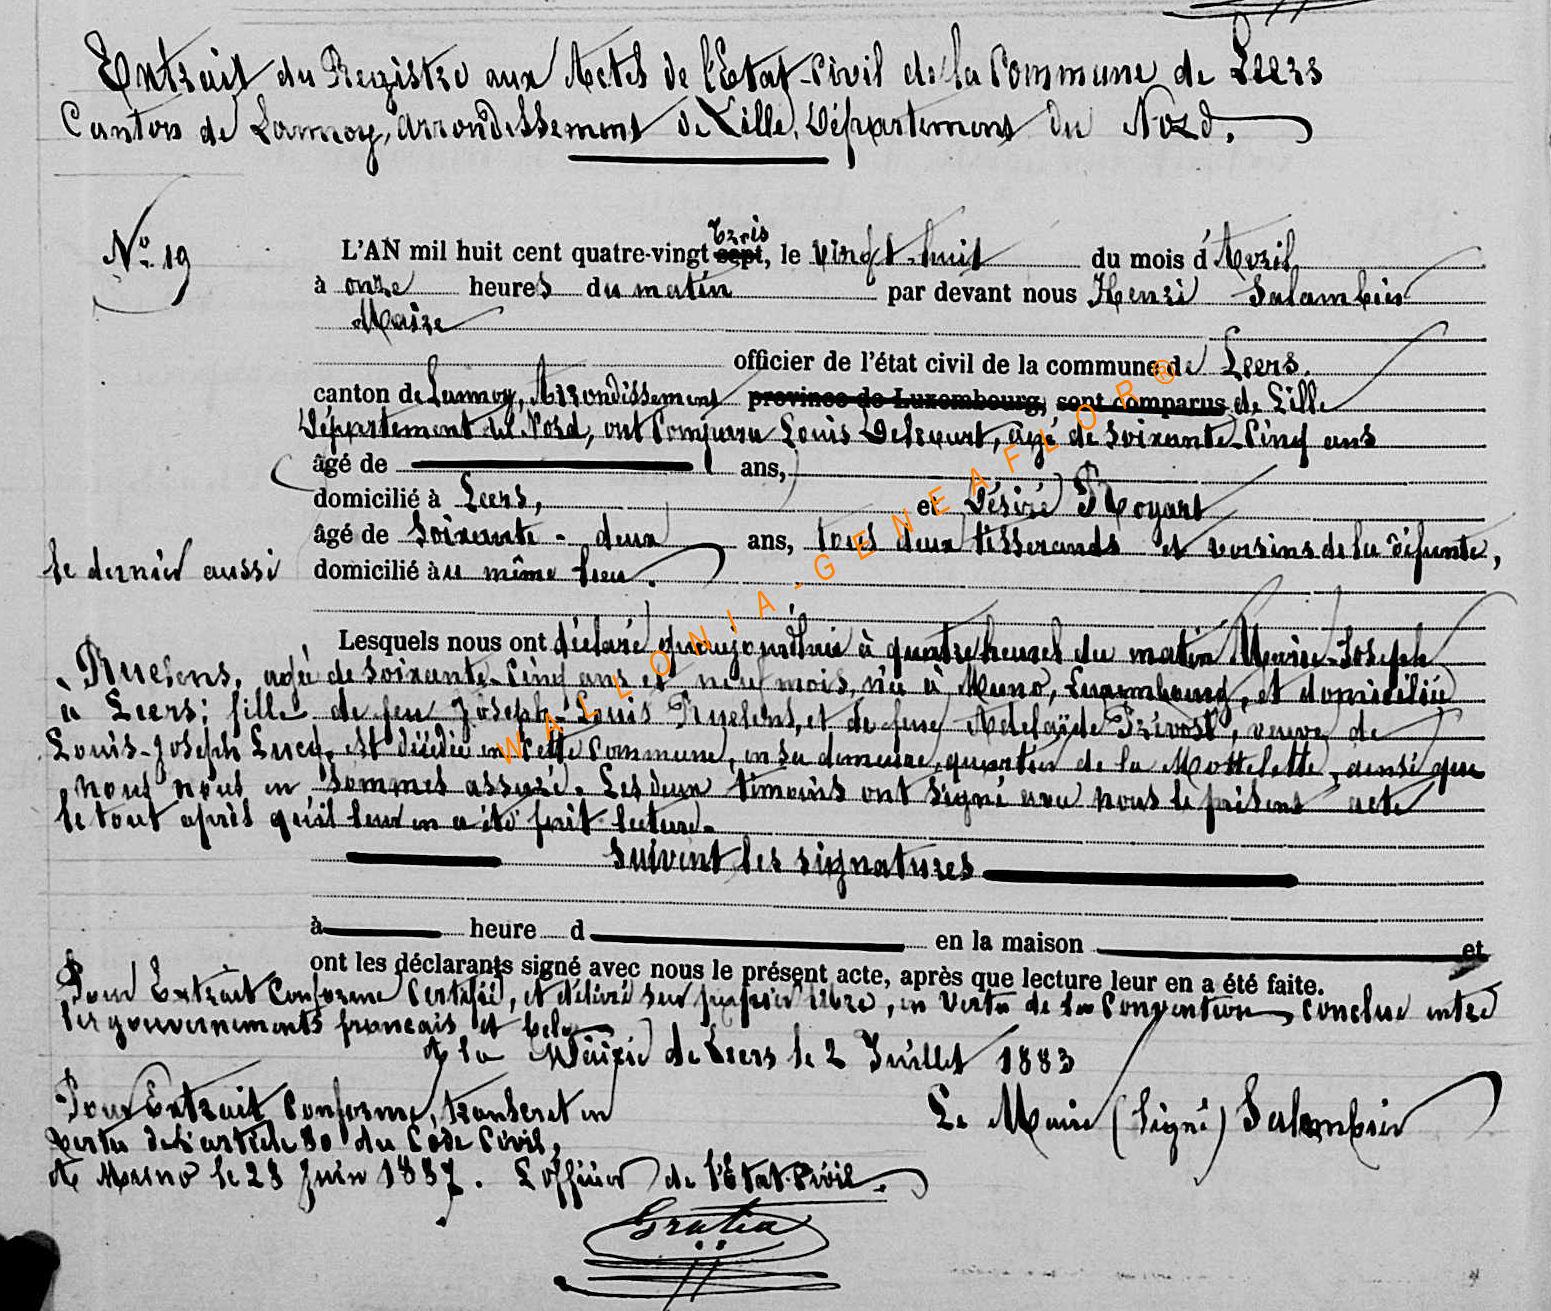 Extrait du Registre aux Actes de l'Etat-Civil de la Commune de Leers
Canton de Lannoy, arrondissement de Lille, Département du Nord.
N° 19
L'AN mil huit cent quatre-vingt sept trois, le vingt-huit du mois d'Avril
à onze heures du matin par devant nous Henri Salembier
Maire
officier de l'état civil de la commune de Leers.
canton de Lannoy, Arrondissement province de Luxembourg, sont comparus de Lille
Département du Nord, ont comparu Louis Delcourt, âgé de soixante-cinq ans
âgé de ans,
domicilié à Leers, et Désiré Royart
âgé de soixante-deux ans, tous deux tisserands et voisins de la défunte,
le dernier aussi domicilié au même lieu.
Lesquels nous ont déclaré qu'aujourd'hui à quatre heures du matin Marie-Joseph
Ruelens, agée de soixante-cinq ans et neuf mois, née à Muno, Luxembourg, et domiciliée
à Leers; fille de feu Joseph-Louis Ruelens, et de feue Adelaïde Prévost, veuve de
Louis-Joseph Lucq, est décédée en cette Commune, en sa demeure, quartier de la Mottelette, ainsi que
nous nous en sommes assuré. Les deux témoins ont signé avec nous le présent acte
le tout après qu'il leur en a été fait lecture.
Suivent les signatures
à heure d en la maison et
ont les déclarants signé avec nous le présent acte, après que lecture leur en a été faite.
Pour Extrait Conforme Certifié, et délivré sur papier libre, en vertu de la Convention conclue entre
les gouvernements français et belge
A la Mairie de Leers le 2 Juillet 1883
Le Maire (Signé) Salembier
Pour Extrait Conforme, transcrit en
vertu de l'article 80 du Code Civil,
A Muno le 28 Juin 1887. L'officier de l'Etat-Civil.
Gratia
WALLONIA-GENEAFLOR®